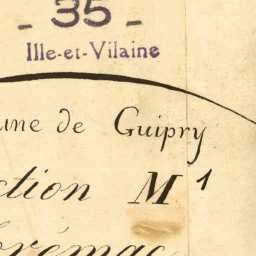 - 35 -
Ille-et-Vilaine
une de Guipry
ction M¹
brémac